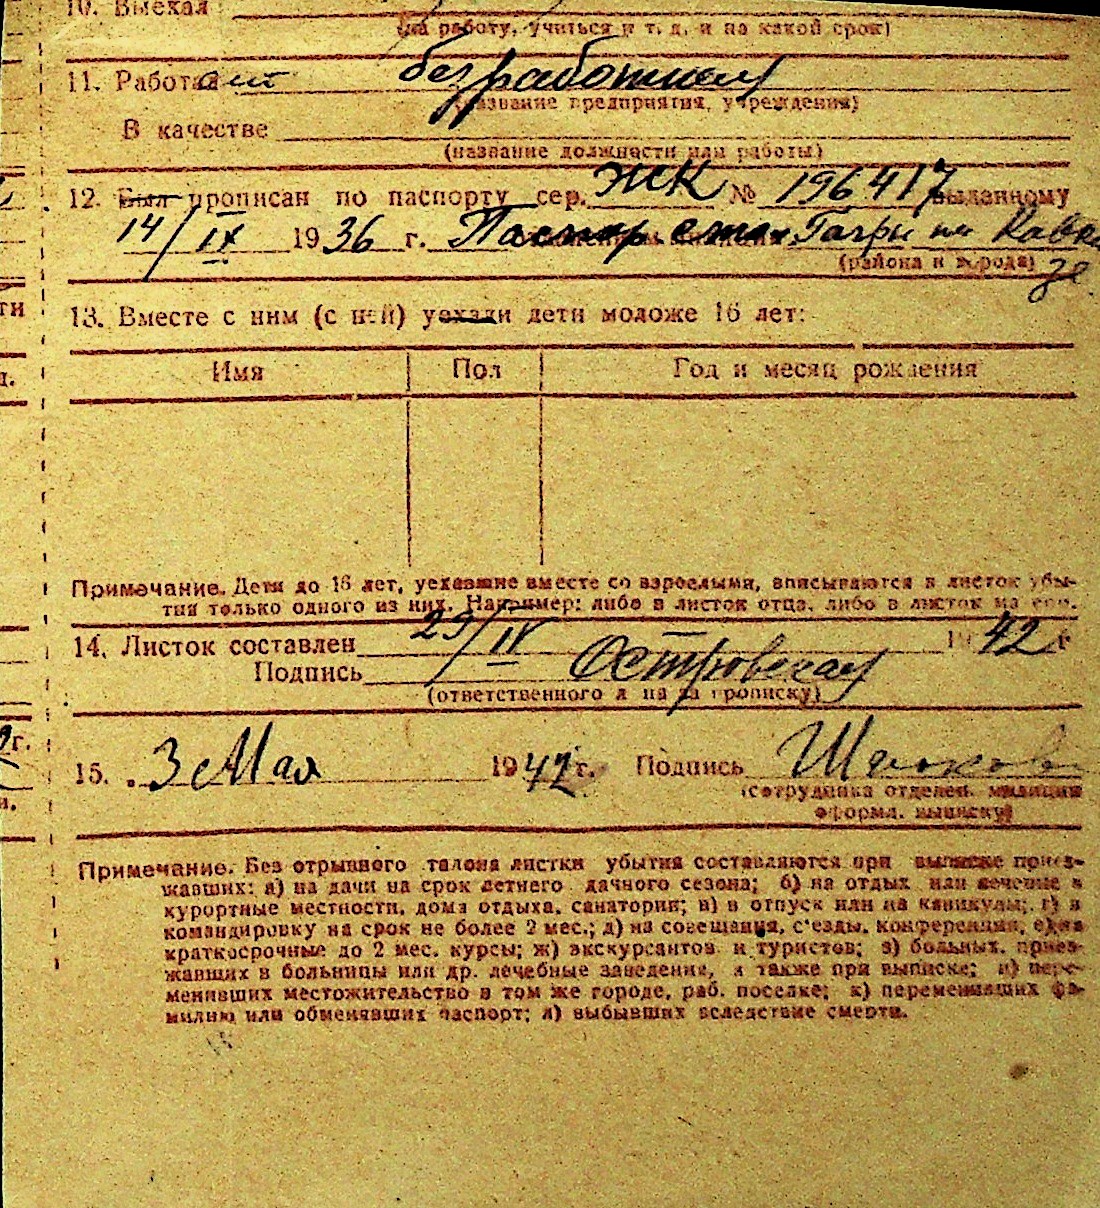 10. Выехал
(на работу, учиться и т. д. и на какой срок)
11. Работал безработный
(название предприятия, учреждения)
В качестве
(название должности или работы)
12. Был прописан по паспорту сер. ЖК № 196417 выданному
14/IX 1936 г. Паспор стол Гагры на Кавка
(района и города) зе
13. Вместе с ним (с ней) уехали дети моложе 16 лет:
Имя Пол Год и месяц рождения
Примечание. Дети до 16 лет, уехавшие вместе со взрослыми, вписываются в листок убы-
тия только одного из них. Например: либо в листок отца, либо в листок матери.
14. Листок составлен 29/IV 1942 г
Подпись Островская
(ответственного за прописку)
15. 3 Мая 1942 г. Подпись
(сотрудника отделен. милиции
оформл. выписку)
Примечание. Без отрывного талона листки убытия составляются при выписке приез-
жавших: а) на дачи на срок летнего дачного сезона; б) на отдых или лечение в
курортные местности, дома отдыха, санатории; в) в отпуск или на каникулы; г) в
командировку на срок не более 2 мес.; д) на совещания, с'езды, конференции; е) на
краткосрочные до 2 мес. курсы; ж) экскурсантов и туристов; з) больных, приез-
жавших в больницы или др. лечебные заведения, а также при выписке; и) пере-
менивших местожительство в том же городе, раб. поселке; к) переменивших фа-
милию или обменявших паспорт; л) выбывших вследствие смерти.